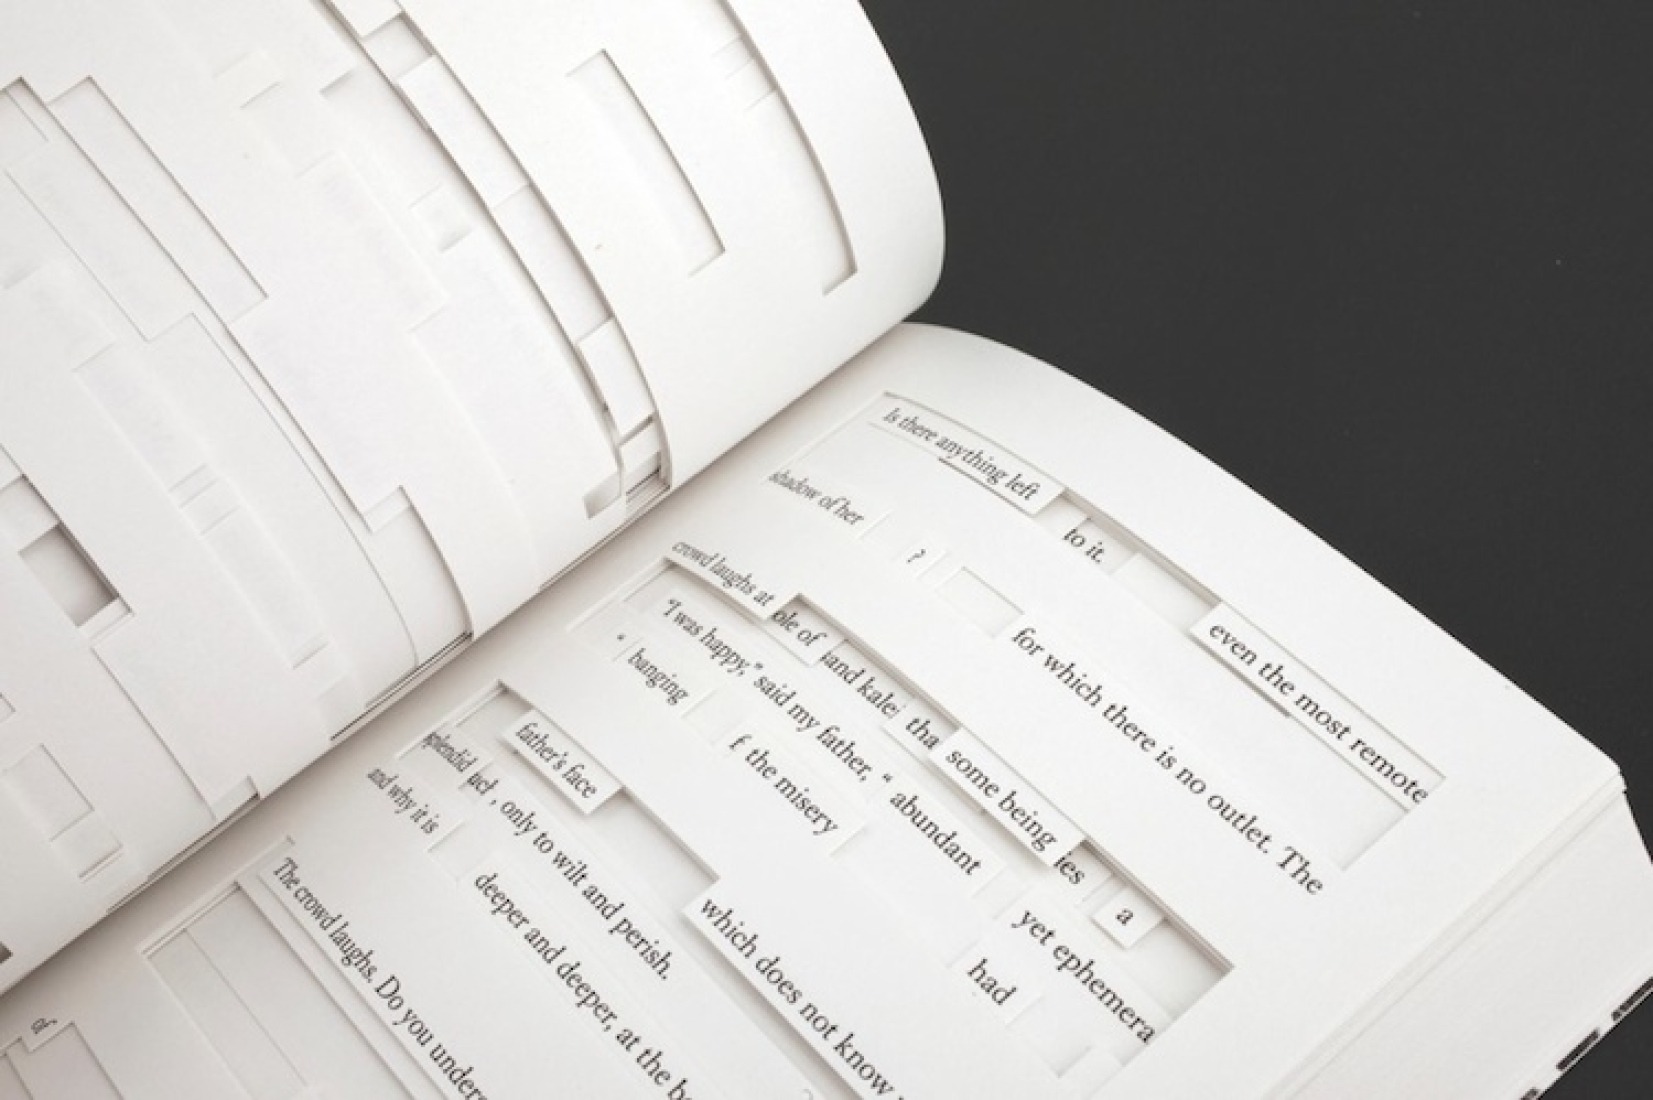 of
Is there anything left to it. even the most remote
shadow of her ? for which there is no outlet. The
crowd laughs at ole of and kale tha some being les a
"I was happy," said my father, "abundant yet ephemera
" banging f the misery had
father's face which does not know
splendid , only to wilt and perish.
and why it is deeper and deeper, at the be
The crowd laughs. Do you unders